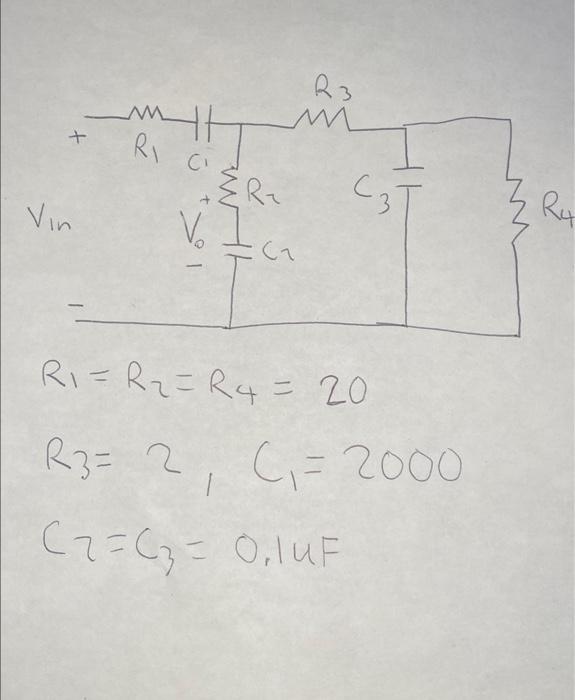 R3
+ R1 C1
R2
+
C3
R4
Vin
Vo
C2
-
-
R1 = R2 = R4 = 20
R3 = 2, C1 = 2000
C2 = C3 = 0.1uF